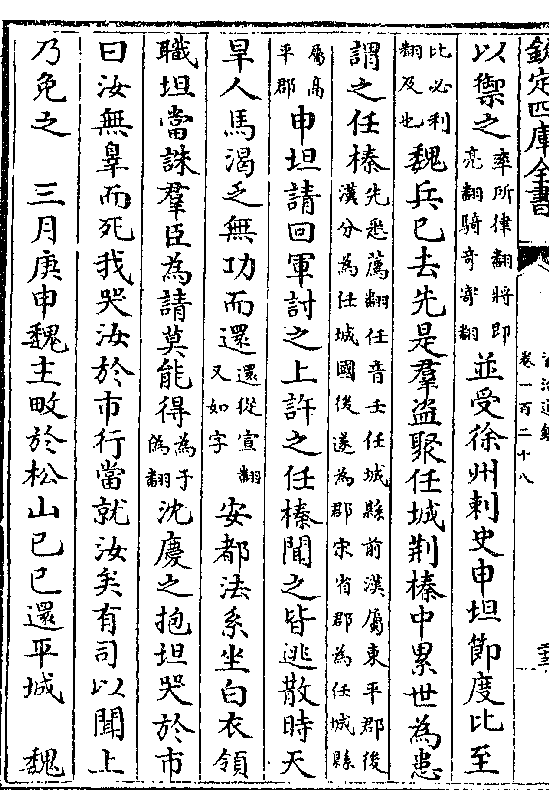 欽定四庫全書
卷一百二十八
以禦之率所律翻將即亮翻騎奇寄翻並受徐州刺史申坦節度比至
比必利翻及也魏兵已去先是羣盜聚任城荆榛中累世為患
謂之任榛先悉薦翻任音壬任城縣前漢屬東平郡後漢分為任城國後遂為郡宋省郡為任城縣
屬高平郡申坦請回軍討之上許之任榛聞之皆逃散時天
旱人馬渴乏無功而還還從宣翻又如字安都法系坐白衣領
職坦當誅羣臣為請莫能得為于偽翻沈慶之抱坦哭於市
曰汝無辠而死我哭汝於市行當就汝矣有司以聞上
乃免之　三月庚申魏主畋於松山己巳還平城　魏